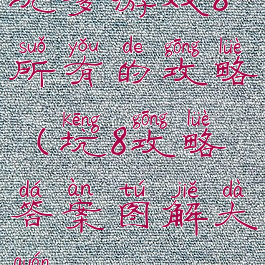 suǒ yǒu de gōng lüè
所有的攻略
kēng gōng lüè
(坑8攻略
dá àn tú jiě dà
答案图解大